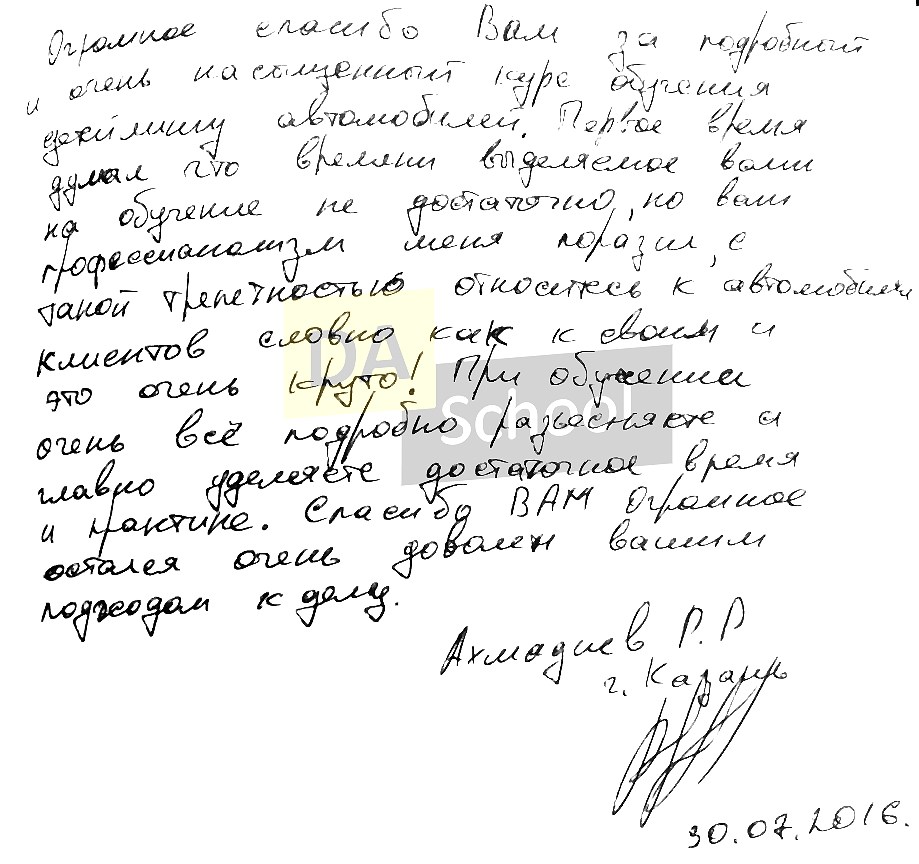 Огромное спасибо Вам за подробный
и очень насыщенный курс обучения
детейлингу автомобилей. Первое время
думал что времяни выделяемое вами
на обучение не достаточно, но ваш
профессианализм меня поразил, с
такой трепетностью относитесь к автомобилям
клиентов словно как к своим и
это очень круто! При обучении
очень всё подробно разъесняете а
главно уделяете достаточное время
и практике. Спасибо ВАМ Огромное
остался очень доволен вашим
подходом к делу.
DA
School
Ахмадиев Р.Р
г. Казань
30.07.2016.